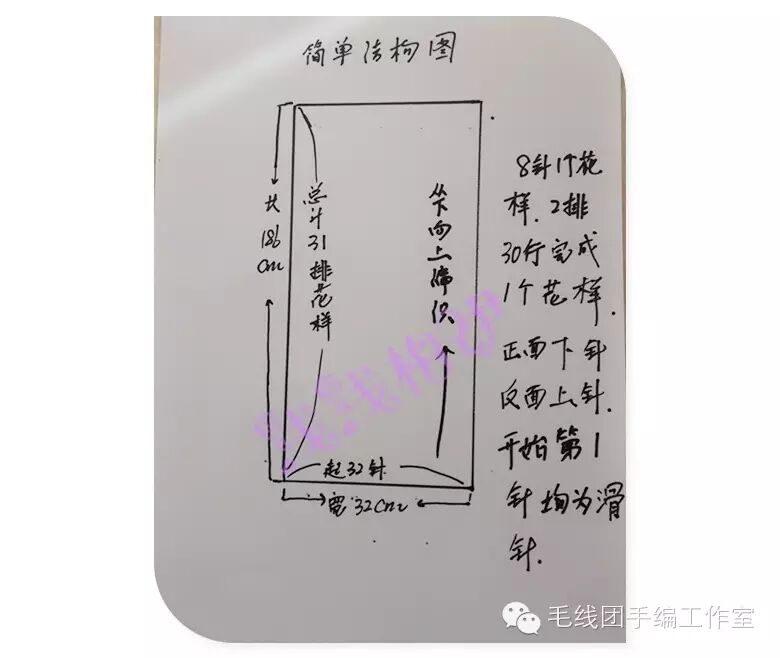 简单结构图
长186cm
总计31排花样
从下向上编织
起32针
宽32cm
8针1个花
样.2排
30行完成
1个花样.
正面下针
反面上针.
开始第1
针均为滑
针.
毛线团手编工作室